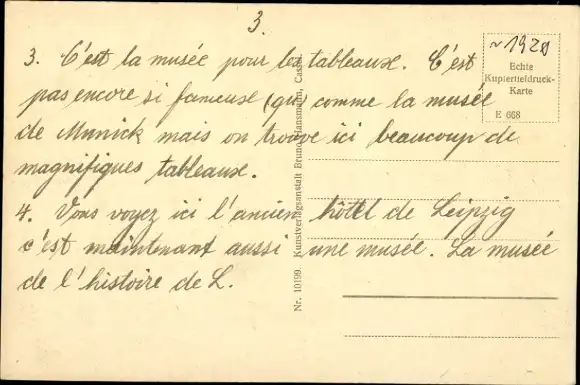 3.
~1920
Echte
Kupfertiefdruck-
Karte
E 668
3. C'est la musée pour les tableaux. C'est
pas encore si fameuse (qu) comme la musée
de Munick mais on trouve ici beaucoup de
magnifiques tableaux.
4. Vous voyez ici l'ancien hôtel de Leipzig
c'est maintenant aussi une musée. La musée
de l'histoire de L.
Nr. 10199. Kunstverlagsanstalt Bruno Hansmann, Cassel.